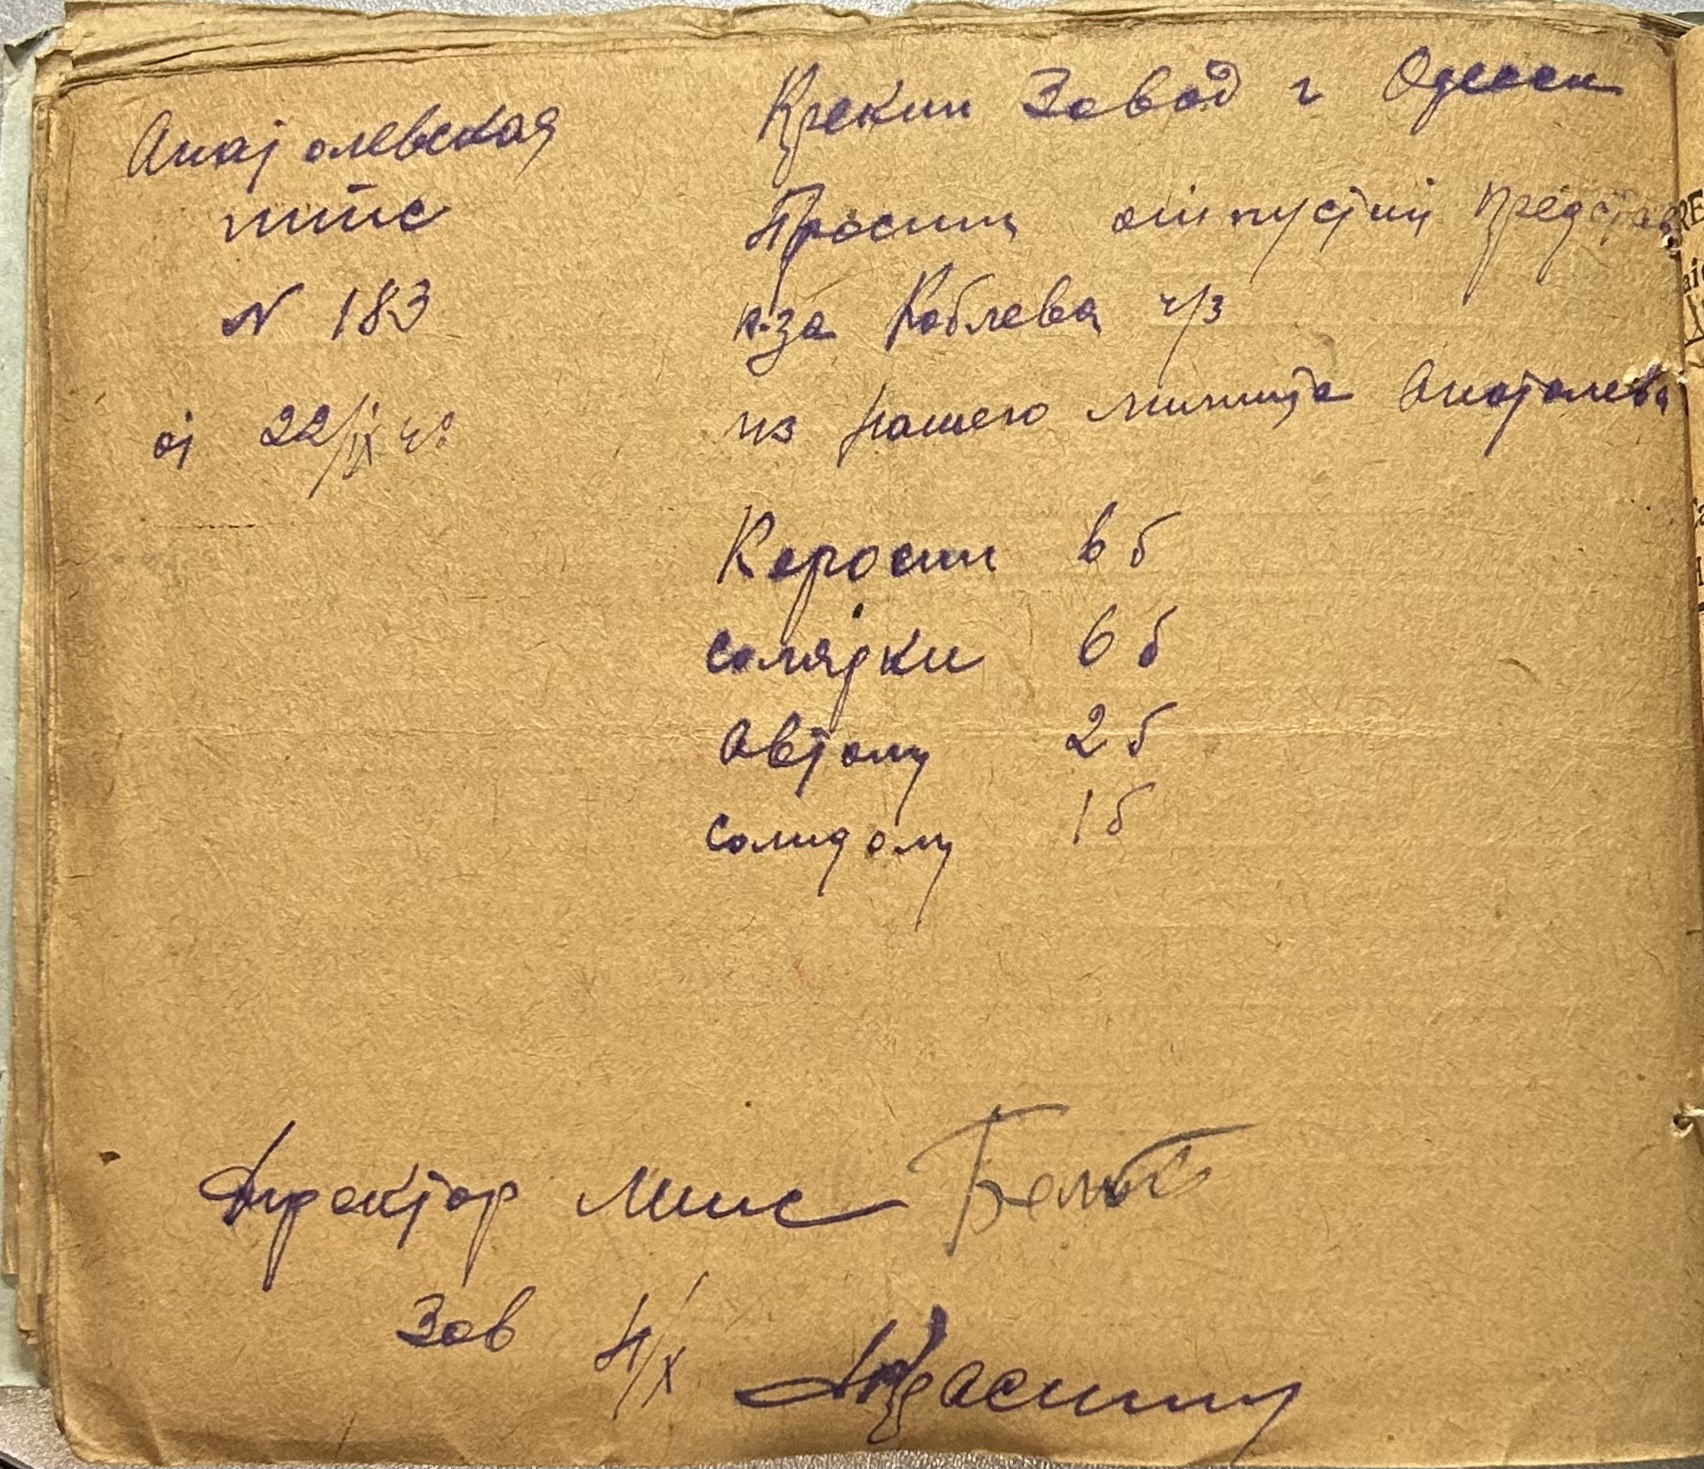 Анатолевская
мтс
N 183
от 22/IX 42
Крекин Завод г Одеси
Просим отпустит представ
к-за Коблева ч/з
из нашего лимита Анатолева
Керосин 6 б
солярки 6 б
Автолу 2 б
солидолу 1 б
Директор Мтс
Зав Н/х